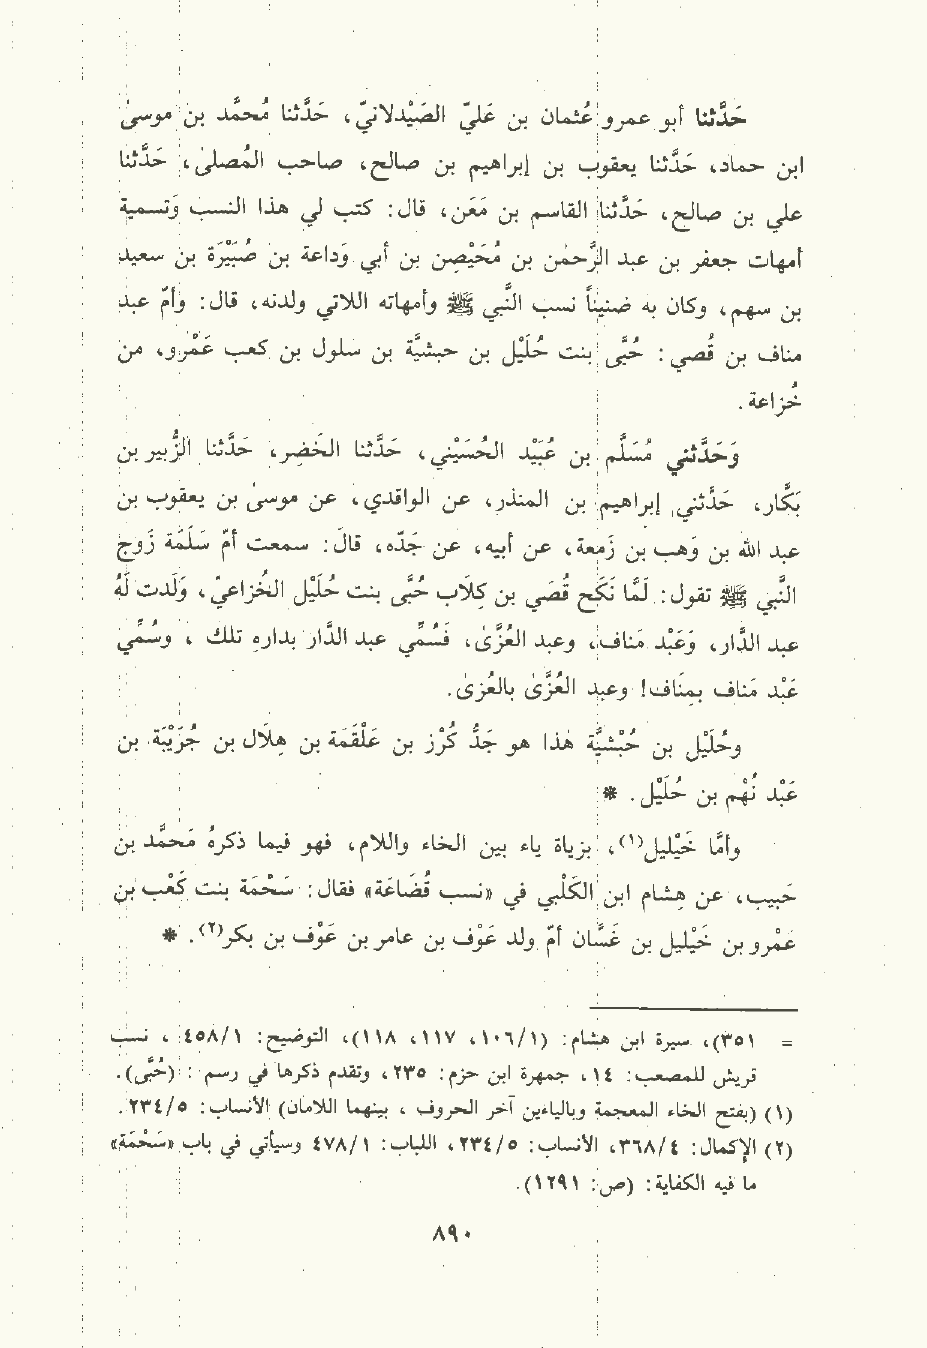 حَدَّثنا أبو عمرو عُثمان بن عَليّ الصَيْدلانيّ، حَدَّثنا مُحمَّد بن موسىٰ
ابن حماد، حَدَّثنا يعقوب بن إبراهيم بن صالح، صاحب المُصلىٰ، حَدَّثنا
علي بن صالح، حَدَّثنا القاسم بن مَعَن، قال: كتب لي هذا النسب وَتسمية
أمهات جعفر بن عبد الرَّحمٰن بن مُحَيْصِن بن أبي وَداعة بن صُبَيْرَة بن سعيد
بن سهم، وكان به ضنيناً نسب النَّبي ﷺ وأمهاته اللاتي ولدنه، قال: وأمّ عبد
مناف بن قُصي: حُبَّى بنت حُلَيْل بن حبشيَّة بن سلول بن كعب عَمْرو، من
خُزاعة.
وَحَدَّثني مُسَلَّم بن عُبَيْد الحُسَيْني، حَدَّثنا الخَضِر، حَدَّثنا الزُّبير بن
بَكَّار، حَدَّثني إبراهيم بن المنذر، عن الواقدي، عن موسىٰ بن يعقوب بن
عبد الله بن وَهب بن زمعة، عن أبيه، عن جَدّه، قالَ: سمعت أمّ سَلَمَة زوج
النَّبي ﷺ تقول: لَمَّا نَكَح قُصَي بن كِلَاب حُبَّى بنت حُلَيْل الخُزاعيّ، وَلَدت لَهُ
عبد الدَّار، وَعَبْد مَناف، وعبد العُزَّىٰ، فَسُمِّي عبد الدَّار بدارهِ تلك، وسُمِّي
عَبْد مَناف بمِنَاف! وعبد العُزَّىٰ بالعُزىٰ.
وحُلَيْل بن حُبْشيَّة هٰذا هو جَدُّ كُرْز بن عَلْقَمَة بن هِلَال بن جُرَيْبَة بن
عَبْد نُهْم بن حُلَيْل. *
وأمَّا خَيْليل(١)، بزيادة ياء بين الخاء واللام، فهو فيما ذكرهُ مَحمَّد بن
حَبيب، عن هِشام ابن الكَلْبي في «نسب قُضَاعَة» فقال: سَحْمَة بنت كَعْب بن
عَمْرو بن خَيْليل بن غَسَّان أمّ ولد عَوْف بن عامر بن عَوْف بن بكر(٢). *
= ٣٥١)، سيرة ابن هشام: (١٠٦/١، ١١٧، ١١٨)، التوضيح: ٤٥٨/١، نسب
قريش للمصعب: ١٤، جمهرة ابن حزم: ٢٣٥، وتقدم ذكرها في رسم: (حُبَّى).
(١) (بفتح الخاء المعجمة وبالياءين آخر الحروف، بينهما اللامان) الأنساب: ٢٣٤/٥.
(٢) الإكمال: ٣٦٨/٤، الأنساب: ٢٣٤/٥، اللباب: ٤٧٨/١ وسيأتي في باب «سَحْمَة»
ما فيه الكفاية: (ص: ١٢٩١).
٨٩٠